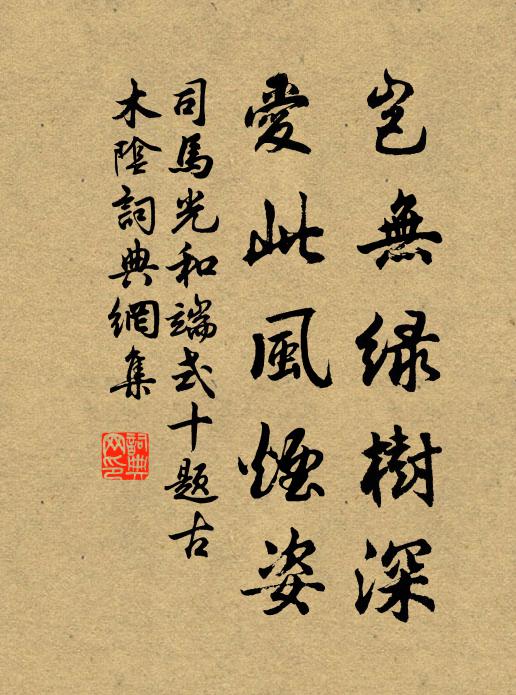 豈無緑樹深
愛此風煙姿
司馬光和端式十題古
木陰詞典網集
詞典网印